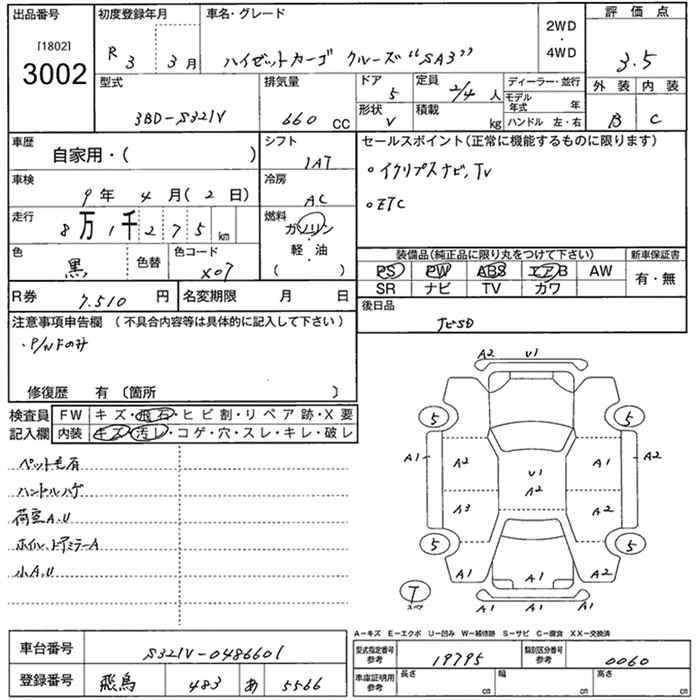 出品番号
[1802]
3002
初度登録年月
R 3 3 月
車名・グレード
ハイゼットカーゴ クルーズ"SA3"
2WD
・
4WD
評価点
3.5
外装 内装
B C
型式
3BD-S321V
排気量
660 CC
ドア 5
形状 V
定員 2/4 人
積載 kg
ディーラー・並行
モデル年式 年
ハンドル 左・右
車歴
自家用・( )
シフト
IAT
車検
9 年 4 月( 2 日)
冷房
AC
走行
8 万 1 千 2 7 5 km
燃料
ガソリン
・
軽・油
( )
色
黒
色替
色コード
X07
セールスポイント(正常に機能するものに限ります)
・イクリプスナビ,TV
・ETC
装備品(純正品に限り丸をつけて下さい)
新車保証書
PS PW ABS エアB AW
SR ナビ TV カワ
有・無
R券
7.510 円
名変期限 月 日
後日品
ナビSD
注意事項申告欄 (不具合内容等は具体的に記入して下さい)
・P/WFのみ
修復歴 有 〔箇所 〕
検査員記入欄
FW キズ・飛石・ヒビ割・リペア跡・X要
内装 キズ・汚レ・コゲ・穴・スレ・キレ・破レ
ペット毛有
ハンドルハゲ
荷室A,U
ホイル,ドアミラーA
小A,U
A2 U1
5 5
A1 A2 A1 A2
U1
A2
A3 A2
5 5
A1 A1 A1 A2
T
スペア
A1
A-キズ E-エクボ U-凹み W-補修跡 S-サビ C-腐食 XX-交換済
車台番号
S321V-0486601
登録番号
飛鳥 483 あ 5566
型式指定番号 参考
19795
類別区分番号 参考
0060
車庫証明用 参考
長さ cm
幅 cm
高さ cm